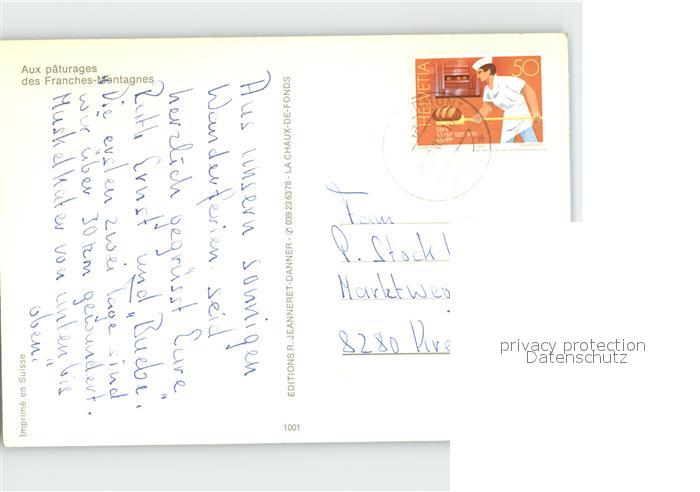 Aux pâturages
des Franches-Montagnes
HELVETIA
50
Aus unsern sonnigen
Wanderferien seid
herzlich gegrüsst Eure
Ruth Ernst und "Buebe".
Die ersten zwei Tage sind
wir über 30 km gewandert.
Muskelkater von unten bis
oben!
EDITIONS R. JEANNERET-DANNER - ✆ 039 236378 - LA CHAUX-DE-FONDS
Fam
P. Stock
Marktweg
8280 Kre
Imprimé en Suisse
1001
privacy protection
Datenschutz